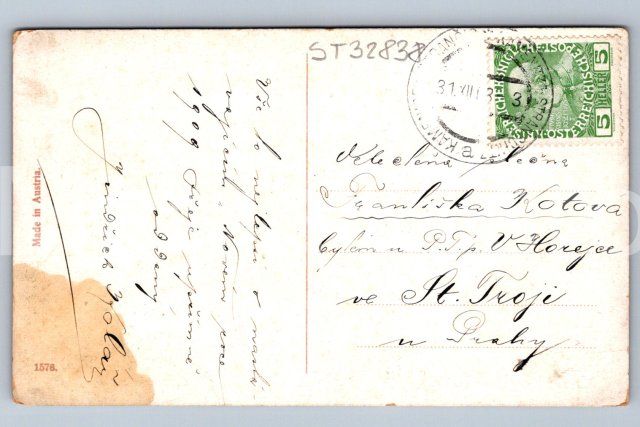 ST32838
31.XII
KAMEN
5 HELLER 5
KAIS. KÖNIGL. ÖSTERREICHISCHE POST
Made in Austria.
1576.
Vše to nejlepší
v Novém roce
1909 přeje upřímně
oddaný
Jindřich Kolář
Velectěná slečna
Františka Kotova
bytem u P.T.p. V Horejce
ve St. Troji
u Prahy